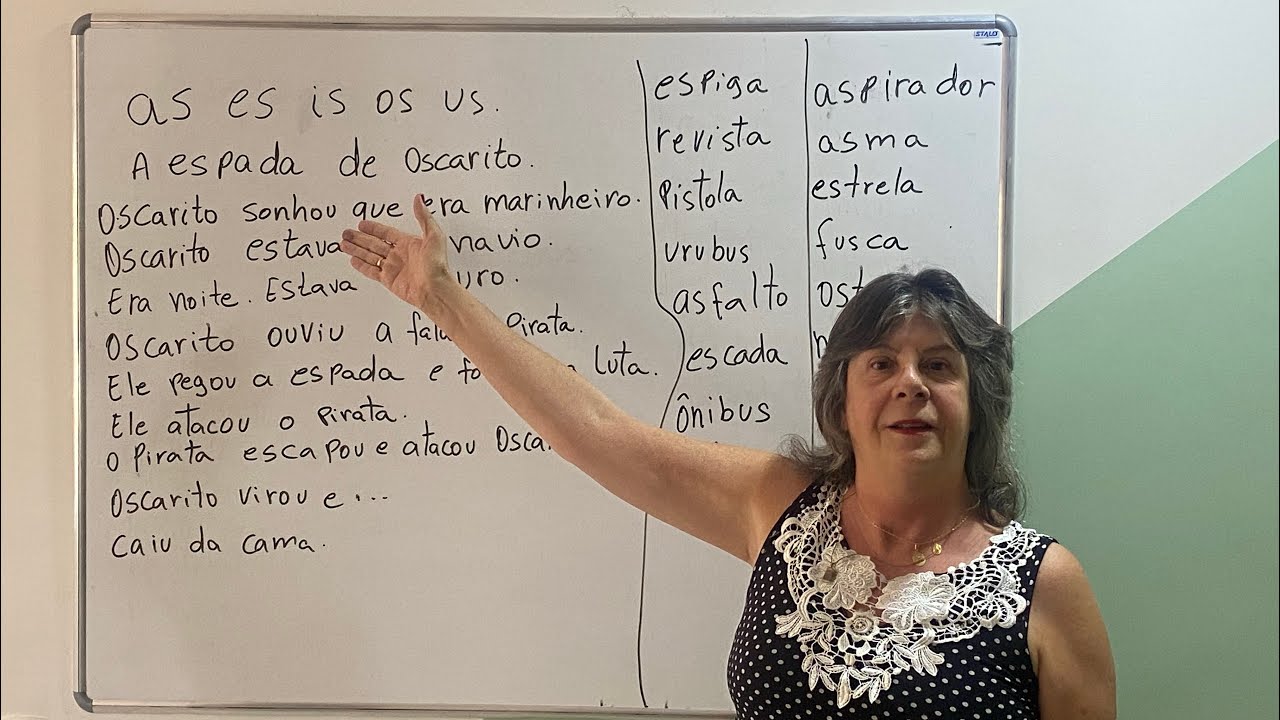 STALO
as es is os us.
A espada de Oscarito.
Oscarito sonhou que era marinheiro.
Oscarito estava navio.
Era noite. Estava
Oscarito ouviu a pirata.
Ele pegou a espada e luta.
Ele atacou o pirata.
o pirata escapou e atacou
Oscarito virou e...
caiu da cama.
espiga
revista
pistola
urubus
asfalto
escada
ônibus
aspirador
asma
estrela
fusca